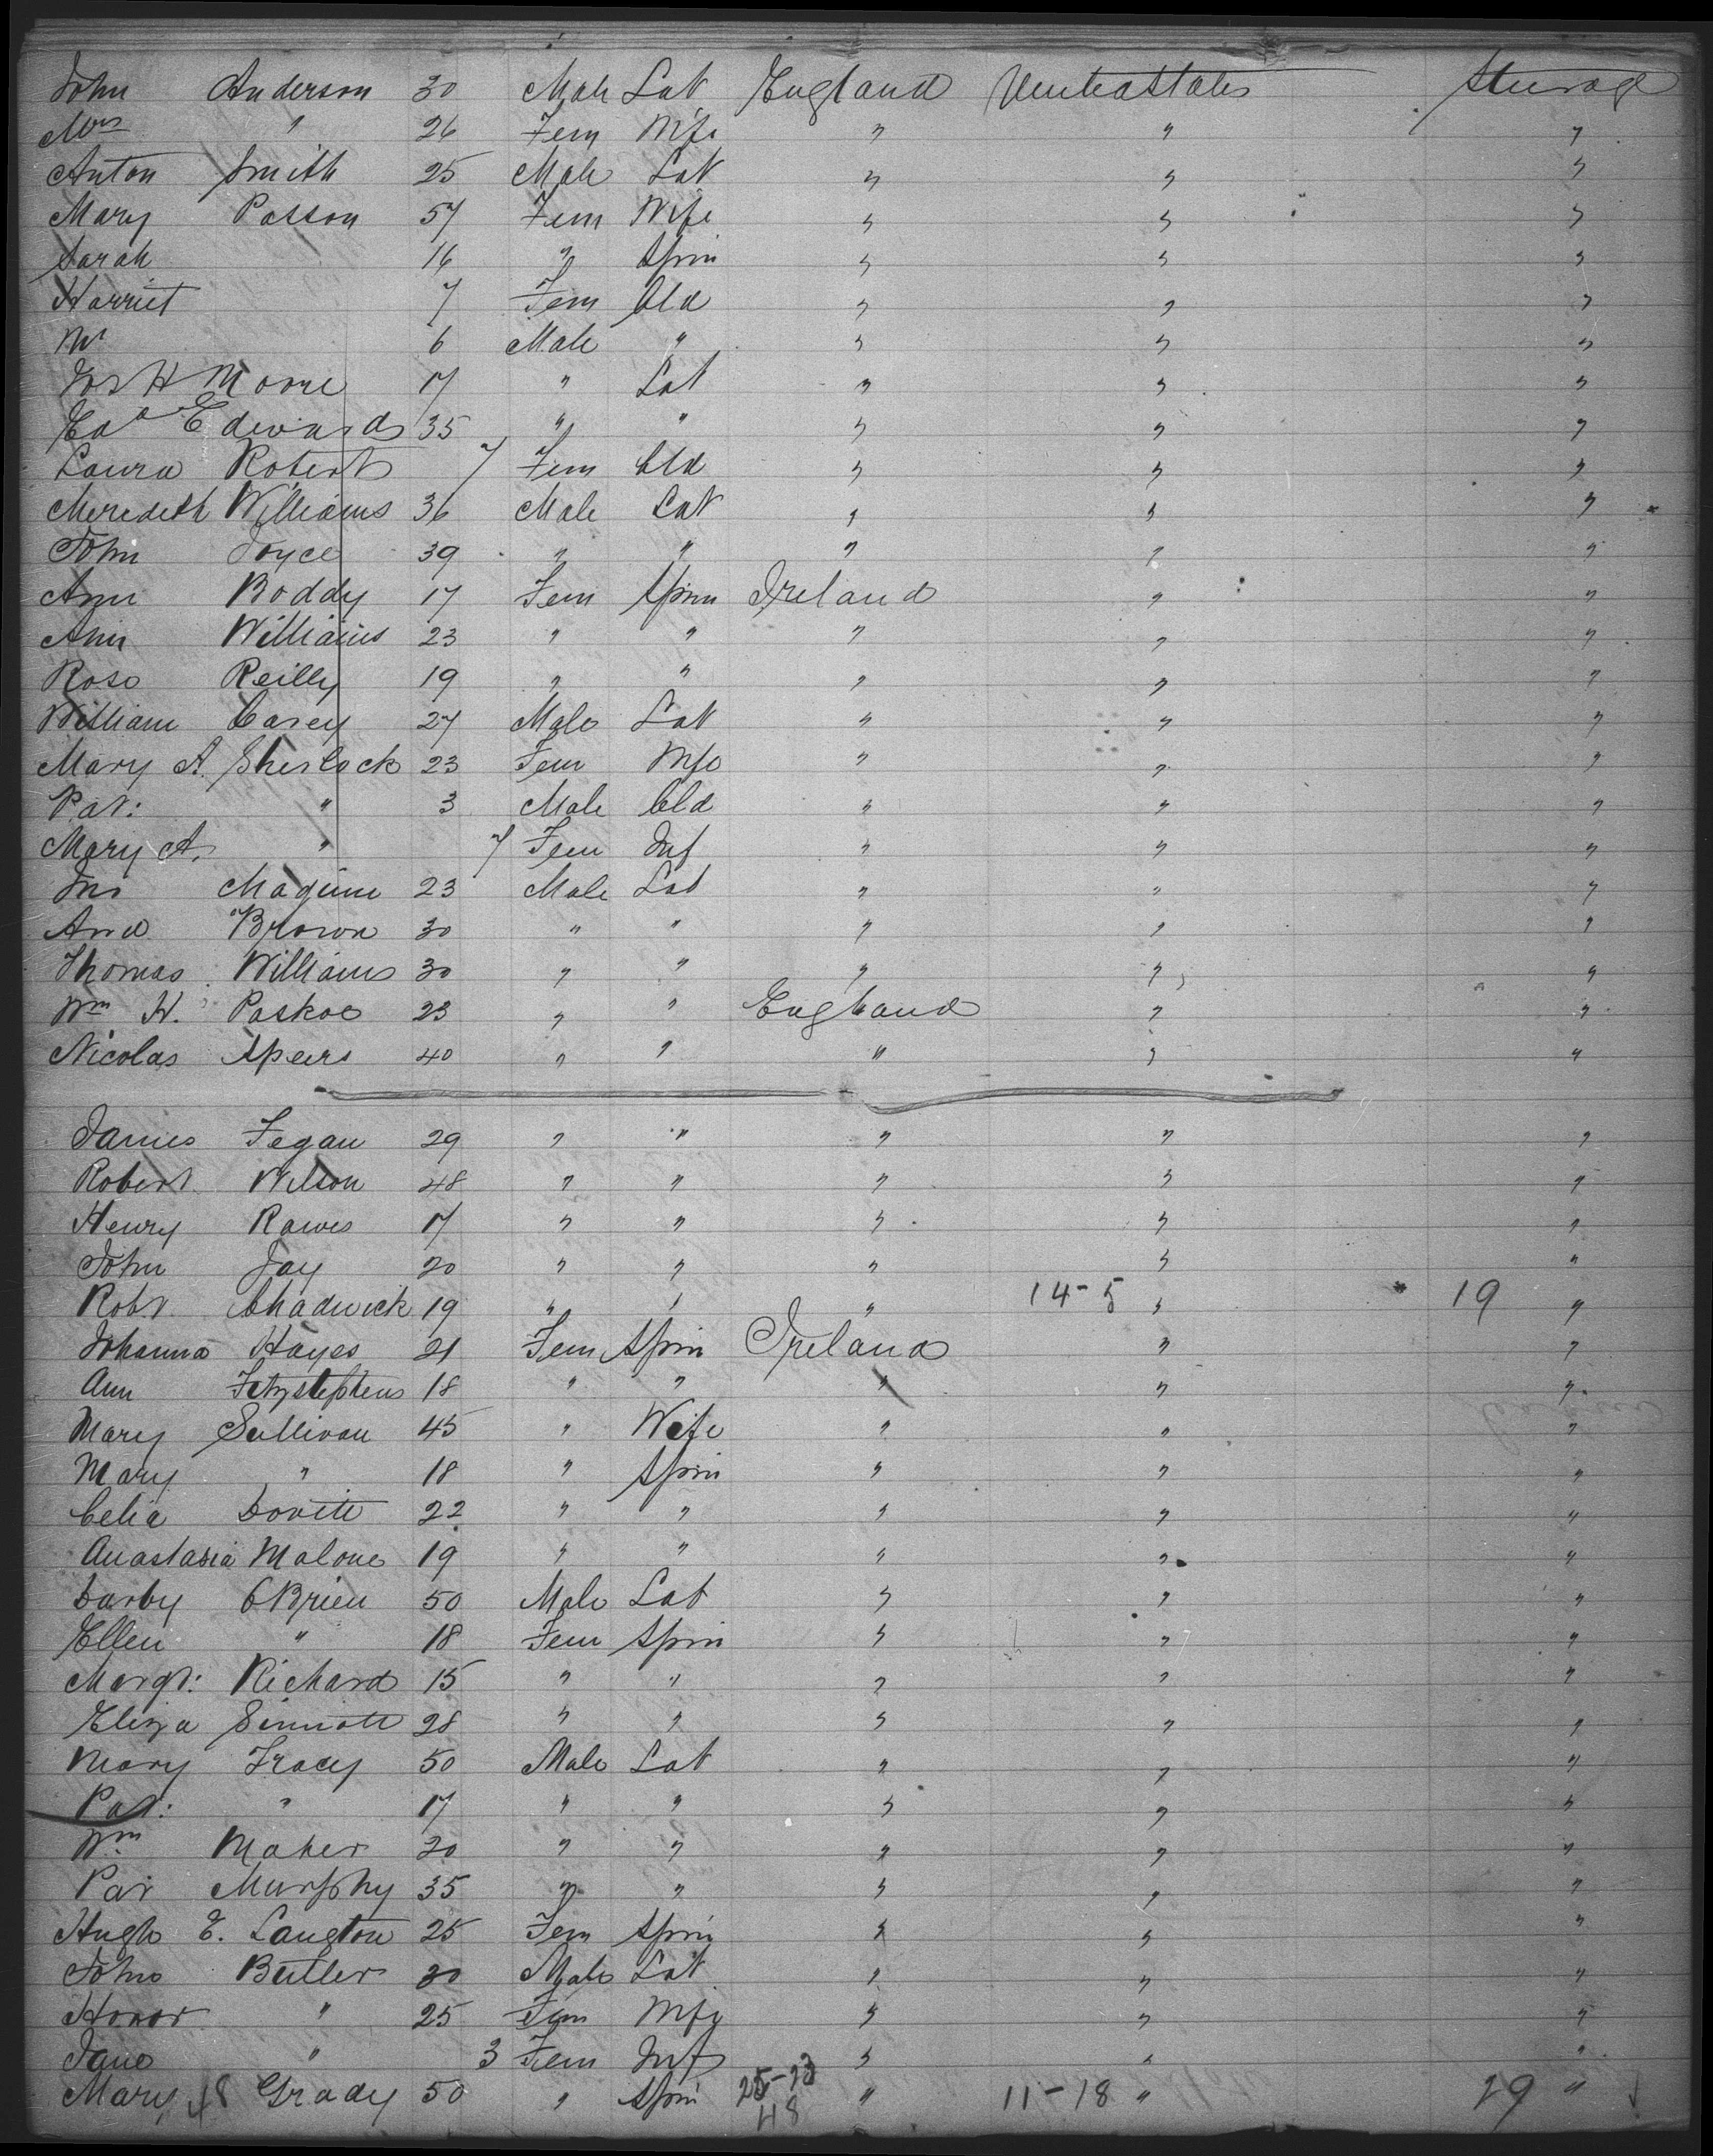 John Anderson 30 Male Lab England United States Steerage
Mrs " 26 Fem Wife " " "
Anton Smith 25 Male Lab " " "
Mary Passon 57 Fem Wife " " "
Sarah 16 " Spin " " "
Harriet 7 Fem Cld " " "
Wm 6 Male " " " "
Jos H Moore 17 " Lab " " "
Ed Edwards 35 " " " " "
Laura Roberts 7 Fem Cld " " "
Meredith Williams 36 Male Lab " " "
John Joyce 39 " " " " "
Ann Boddy 17 Fem Spin Ireland " "
Ann Williams 23 " " " " "
Rose Reilly 19 " " " " "
William Carey 27 Male Lab " " "
Mary A. Sherlock 23 Fem Wfe " " "
Pat: " 3 Male Cld " " "
Mary A. " 7 Fem Inf " " "
Jno Maguire 23 Male Lab " " "
And Brown 30 " " " " "
Thomas Williams 30 " " " " "
Wm H. Paskoe 23 " " England " "
Nicolas Speers 40 " " " " "
James Fegan 29 " " " " "
Robert Wilson 48 " " " " "
Henry Rawes 17 " " " " "
John Jay 20 " " " " "
Robt Chadwick 19 " " " 14-5 " 19 "
Johanna Hayes 21 Fem Spin Ireland " "
Ann Fitzstephens 18 " " " " "
Mary Sullivan 45 " Wife " " "
Mary " 18 " Spin " " "
Celia Dovitt 22 " " " " "
Anastasia Malone 19 " " " " "
Darby O'Brien 50 Male Lab " " "
Ellen " 18 Fem Spin " " "
Margt: Richard 15 " " " " "
Eliza Sinnott 28 " " " " "
Mary Tracy 50 Male Lab " " "
Pat: " 17 " " " " "
Wm Maher 20 " " " " "
Pat Murphy 35 " " " " "
Hugh E. Langton 25 Fem Spin " " "
John Butler 30 Male Lab " " "
Honor " 25 Fem Wfe " " "
Jane " 3 Fem Inf " " "
Mary 48 Grady 50 " Spin 25-23 " 11-18 " 29 "
48